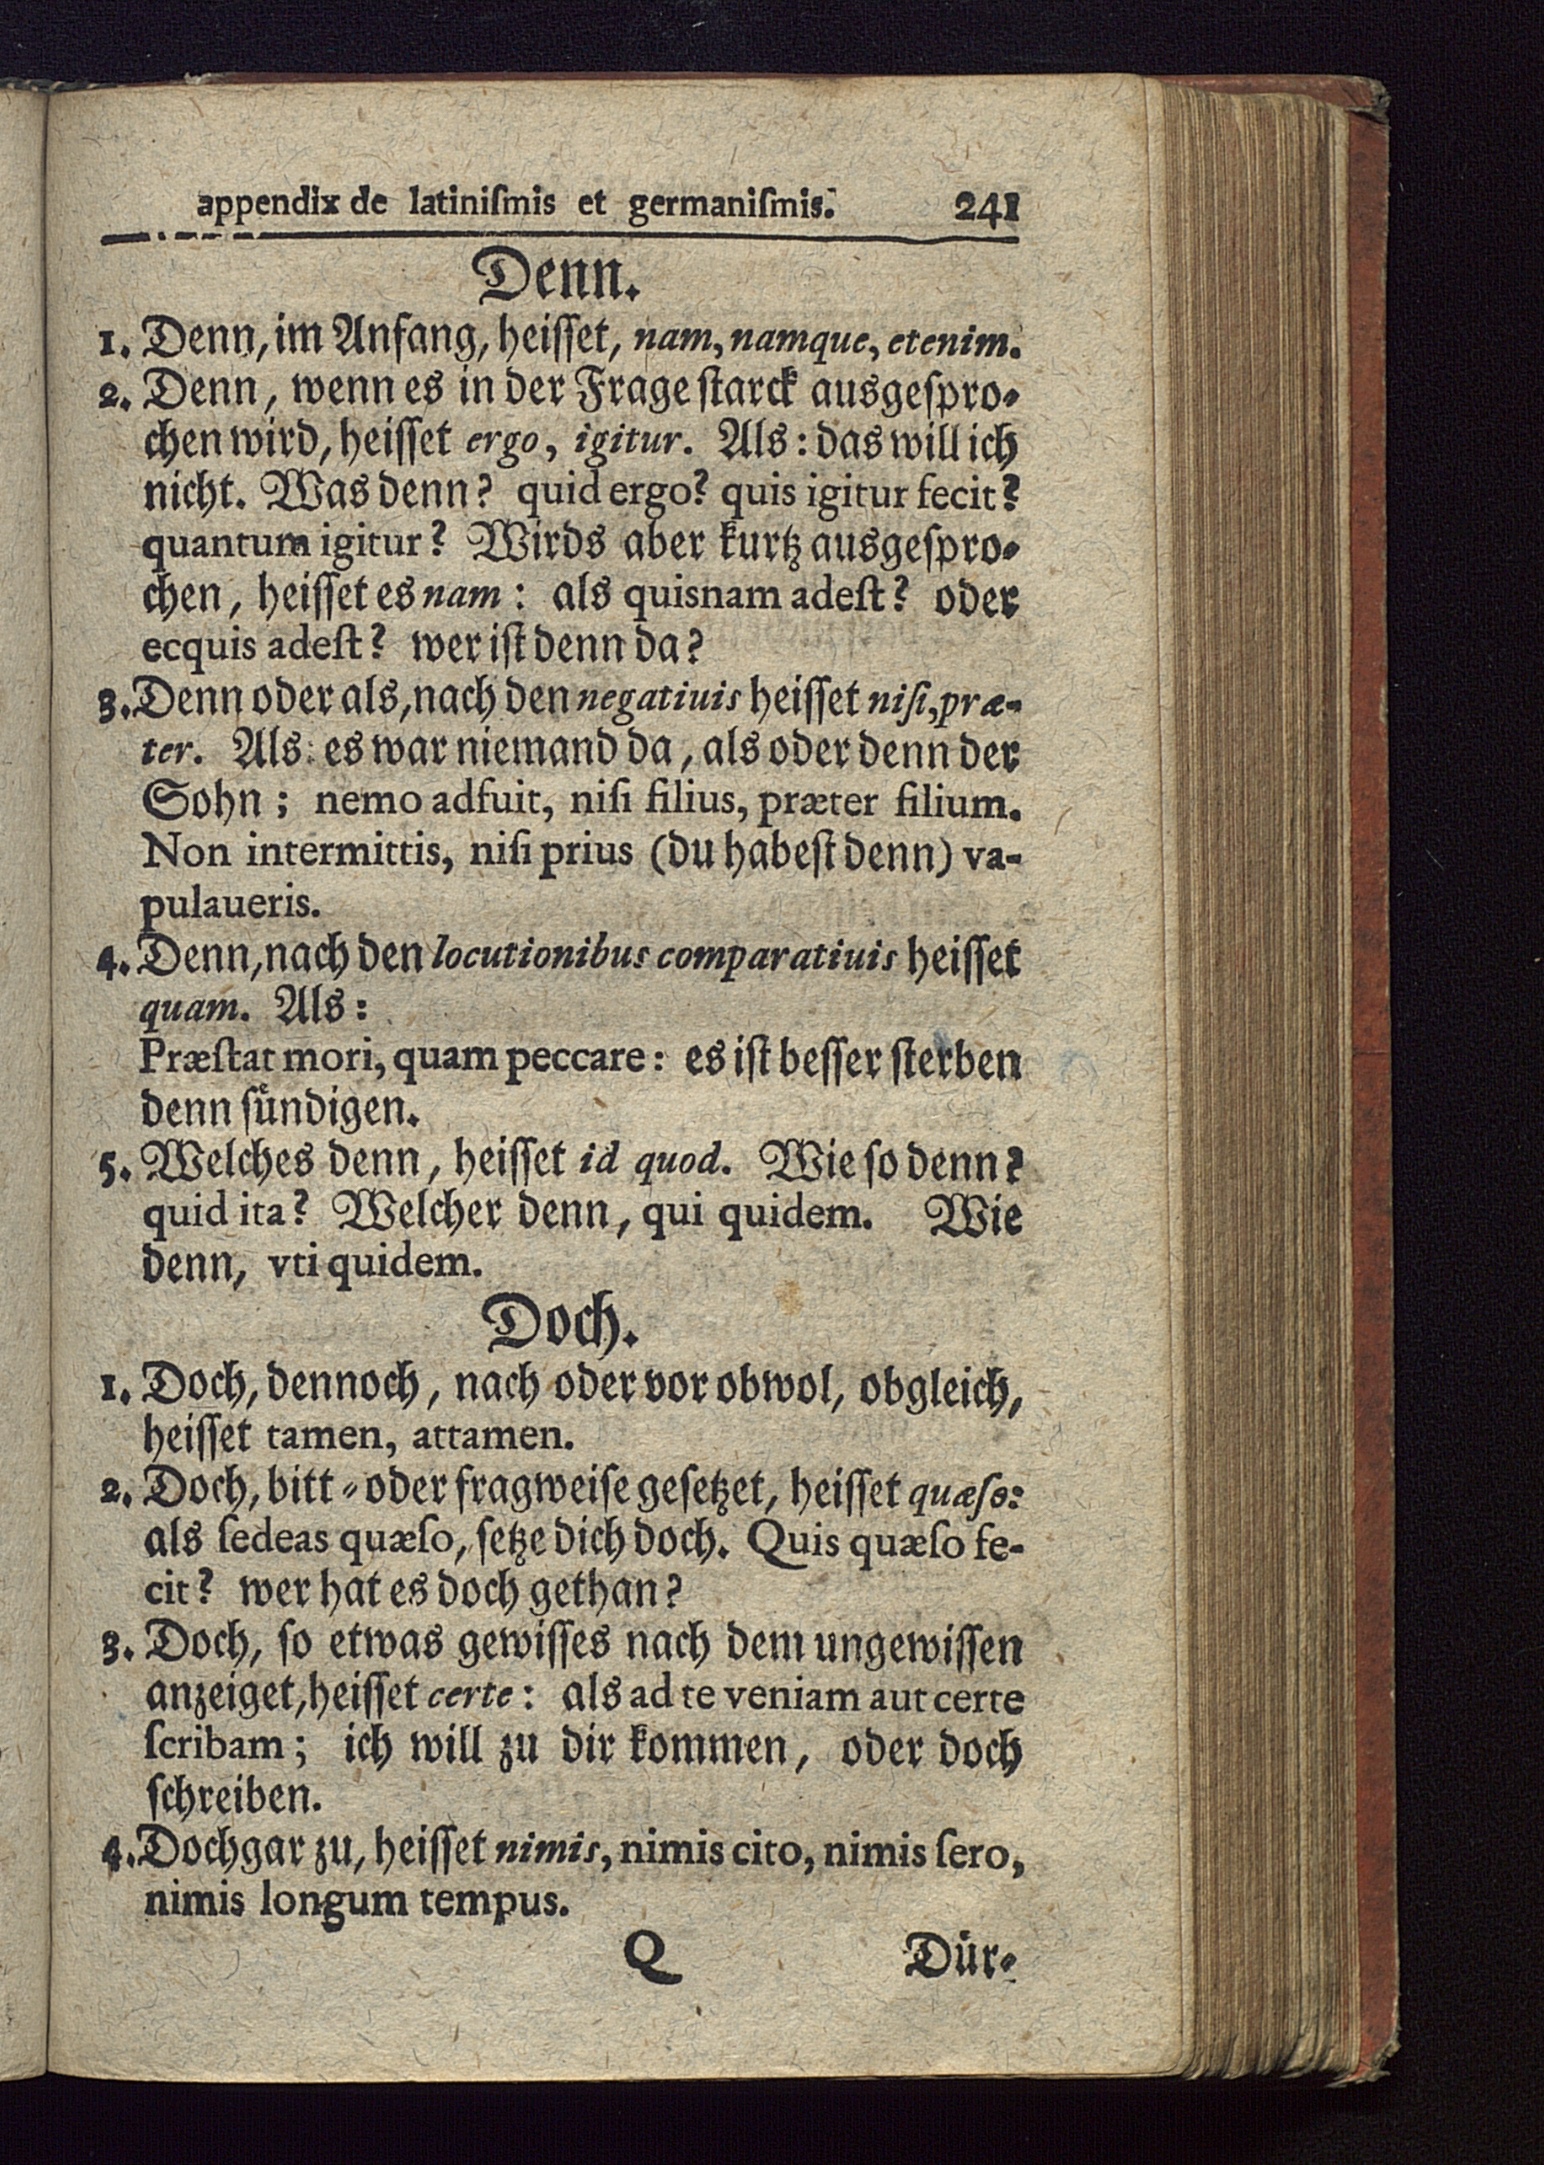 appendix de latiniſmis et germaniſmis. 241
Denn.
1. Denn, im Anfang, heiſſet, nam, namque, etenim.
2. Denn, wenn es in der Frage ſtarck ausgeſpro-
chen wird, heiſſet ergo, igitur. Als: das will ich
nicht. Was denn? quid ergo? quis igitur fecit?
quantum igitur? Wirds aber kurtz ausgeſpro-
chen, heiſſet es nam: als quisnam adeſt? oder
ecquis adeſt? wer iſt denn da?
3. Denn oder als, nach den negatiuis heiſſet niſi, præ-
ter. Als: es war niemand da, als oder denn der
Sohn; nemo adfuit, niſi filius, præter filium.
Non intermittis, niſi prius (du habeſt denn) va-
pulaueris.
4. Denn, nach den locutionibus comparatiuis heiſſet
quam. Als:
Præſtat mori, quam peccare: es iſt beſſer ſterben
denn ſündigen.
5. Welches denn, heiſſet id quod. Wie ſo denn?
quid ita? Welcher denn, qui quidem. Wie
denn, vti quidem.
Doch.
1. Doch, dennoch, nach oder vor obwol, obgleich,
heiſſet tamen, attamen.
2. Doch, bitt- oder fragweiſe geſetzet, heiſſet quæſo:
als ſedeas quæſo, ſetze dich doch. Quis quæſo fe-
cit? wer hat es doch gethan?
3. Doch, ſo etwas gewiſſes nach dem ungewiſſen
anzeiget, heiſſet certe: als ad te veniam aut certe
ſcribam; ich will zu dir kommen, oder doch
ſchreiben.
4. Doch gar zu, heiſſet nimis, nimis cito, nimis ſero,
nimis longum tempus.
Q Dür-